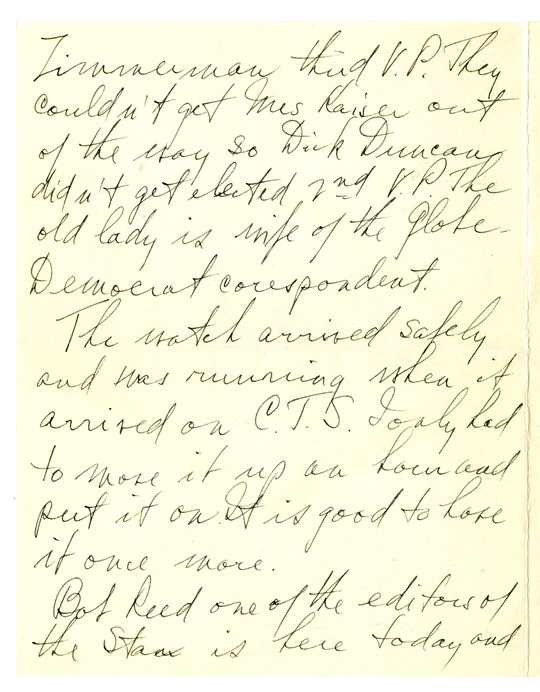 Zimmerman third V.P. They
couldn't get Mrs Kaiser out
of the way so Dick Duncan
didn't get elected 2nd V.P. The
old lady is wife of the Globe-
Democrat corespondent.
The watch arrived safely
and was running when it
arrived on C.T.S. I only had
to move it up an hour and
put it on. It is good to have
it once more.
Bob Reed one of the editors of
the Star is here today and